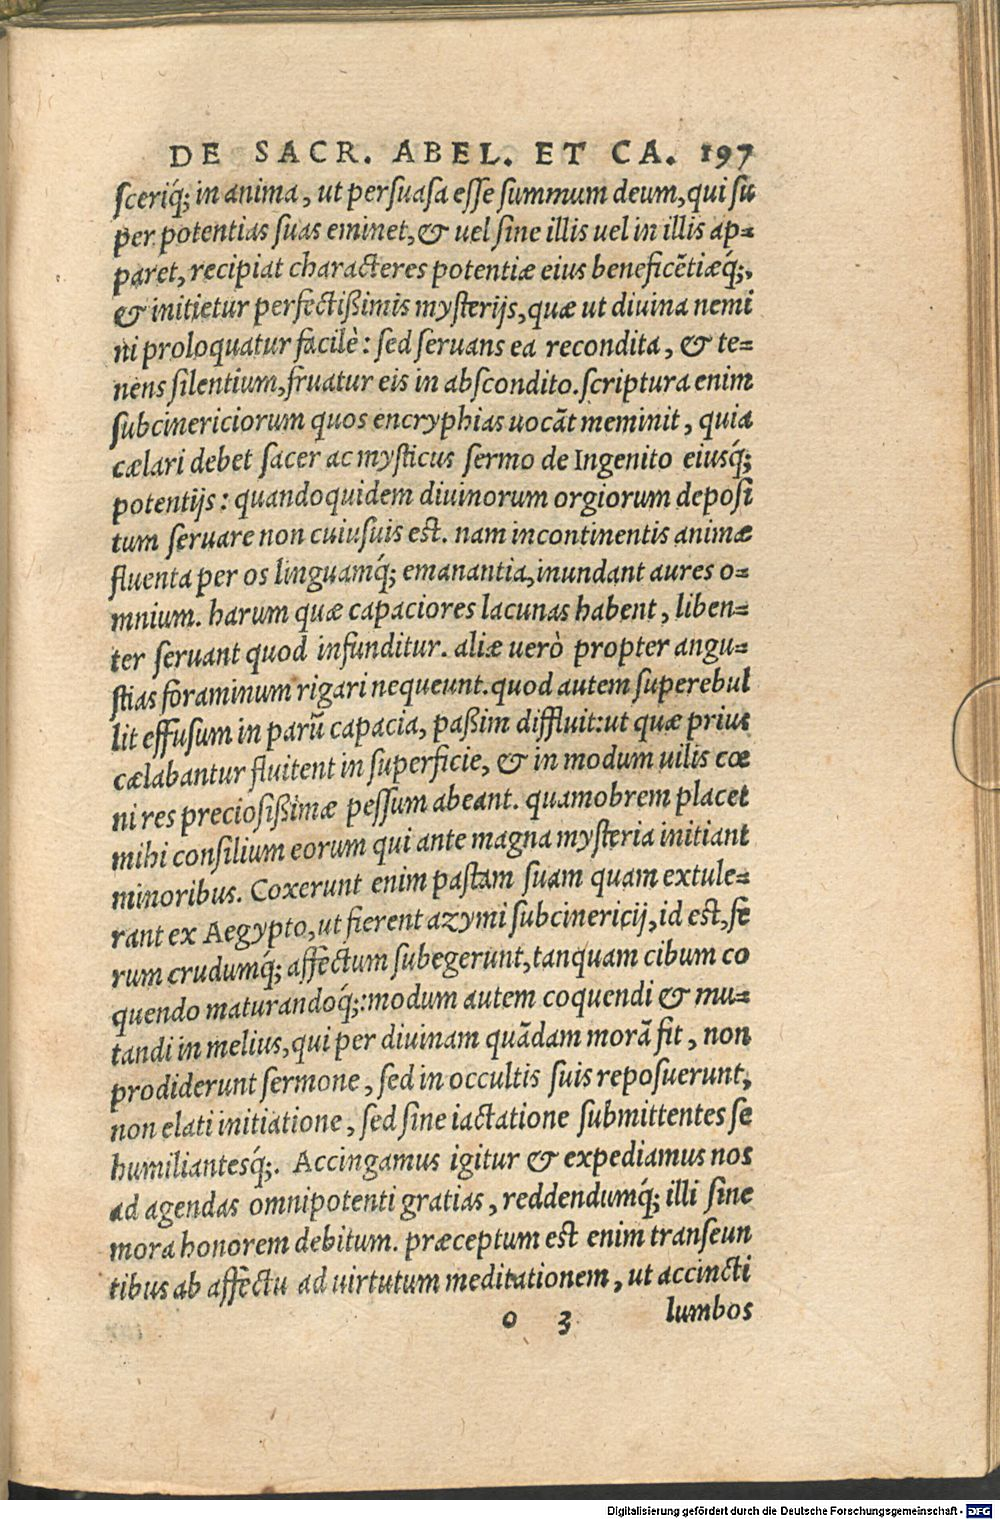 DE SACR. ABEL. ET CA. 197
sceriq́; in anima, ut persuasa esse summum deum, qui su
per potentias suas eminet, & uel sine illis uel in illis ap=
paret, recipiat characteres potentiæ eius beneficẽtiæq́;,
& initietur perfectißimis mysterijs, quæ ut diuina nemi
ni proloquatur facilè: sed seruans ea recondita, & te=
nens silentium, fruatur eis in abscondito. scriptura enim
subcinericiorum quos encryphias uocãt meminit, quia
cælari debet sacer ac mysticus sermo de Ingenito eiusq́;
potentijs: quandoquidem diuinorum orgiorum deposi
tum seruare non cuiusuis est. nam incontinentis animæ
fluenta per os linguamq́; emanantia, inundant aures o=
mnium. harum quæ capaciores lacunas habent, liben=
ter seruant quod infunditur. aliæ uerò propter angu=
stias foraminum rigari nequeunt. quod autem superebul
lit effusum in parũ capacia, paßim diffluit: ut quæ prius
cælabantur fluitent in superficie, & in modum uilis cœ
ni res preciosißimæ pessum abeant. quamobrem placet
mihi consilium eorum qui ante magna mysteria initiant
minoribus. Coxerunt enim pastam suam quam extule=
rant ex Aegypto, ut fierent azymi subcinericij, id est, fe
rum crudumq́; affectum subegerunt, tanquam cibum co
quendo maturandoq́;: modum autem coquendi & mu=
tandi in melius, qui per diuinam quãdam morã fit, non
prodiderunt sermone, sed in occultis suis reposuerunt,
non elati initiatione, sed sine iactatione submittentes se
humiliantesq́;. Accingamus igitur & expediamus nos
ad agendas omnipotenti gratias, reddendumq́; illi sine
mora honorem debitum. præceptum est enim transeun
tibus ab affectu ad uirtutum meditationem, ut accincti
o 3 lumbos
Digitalisierung gefördert durch die Deutsche Forschungsgemeinschaft - DFG